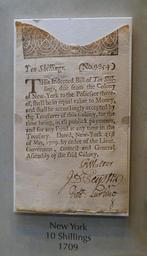 Ten Shillings. (No. 9354)
THis Indented Bill of Ten Shil-
lings, due from the Colony
of New-York to the Possessor there-
of, shall be in equal value to Money,
and shall be accordingly accepted by
the Treasurer of this Colony, for the
time being, in all publick payments,
and for any Fund at any time in the
Treasury. Dated, New-York 31st
of May, 1709. by order of the Lieut.
Governour, Council and General
Assembly of the said Colony.
New York
10 Shillings
1709